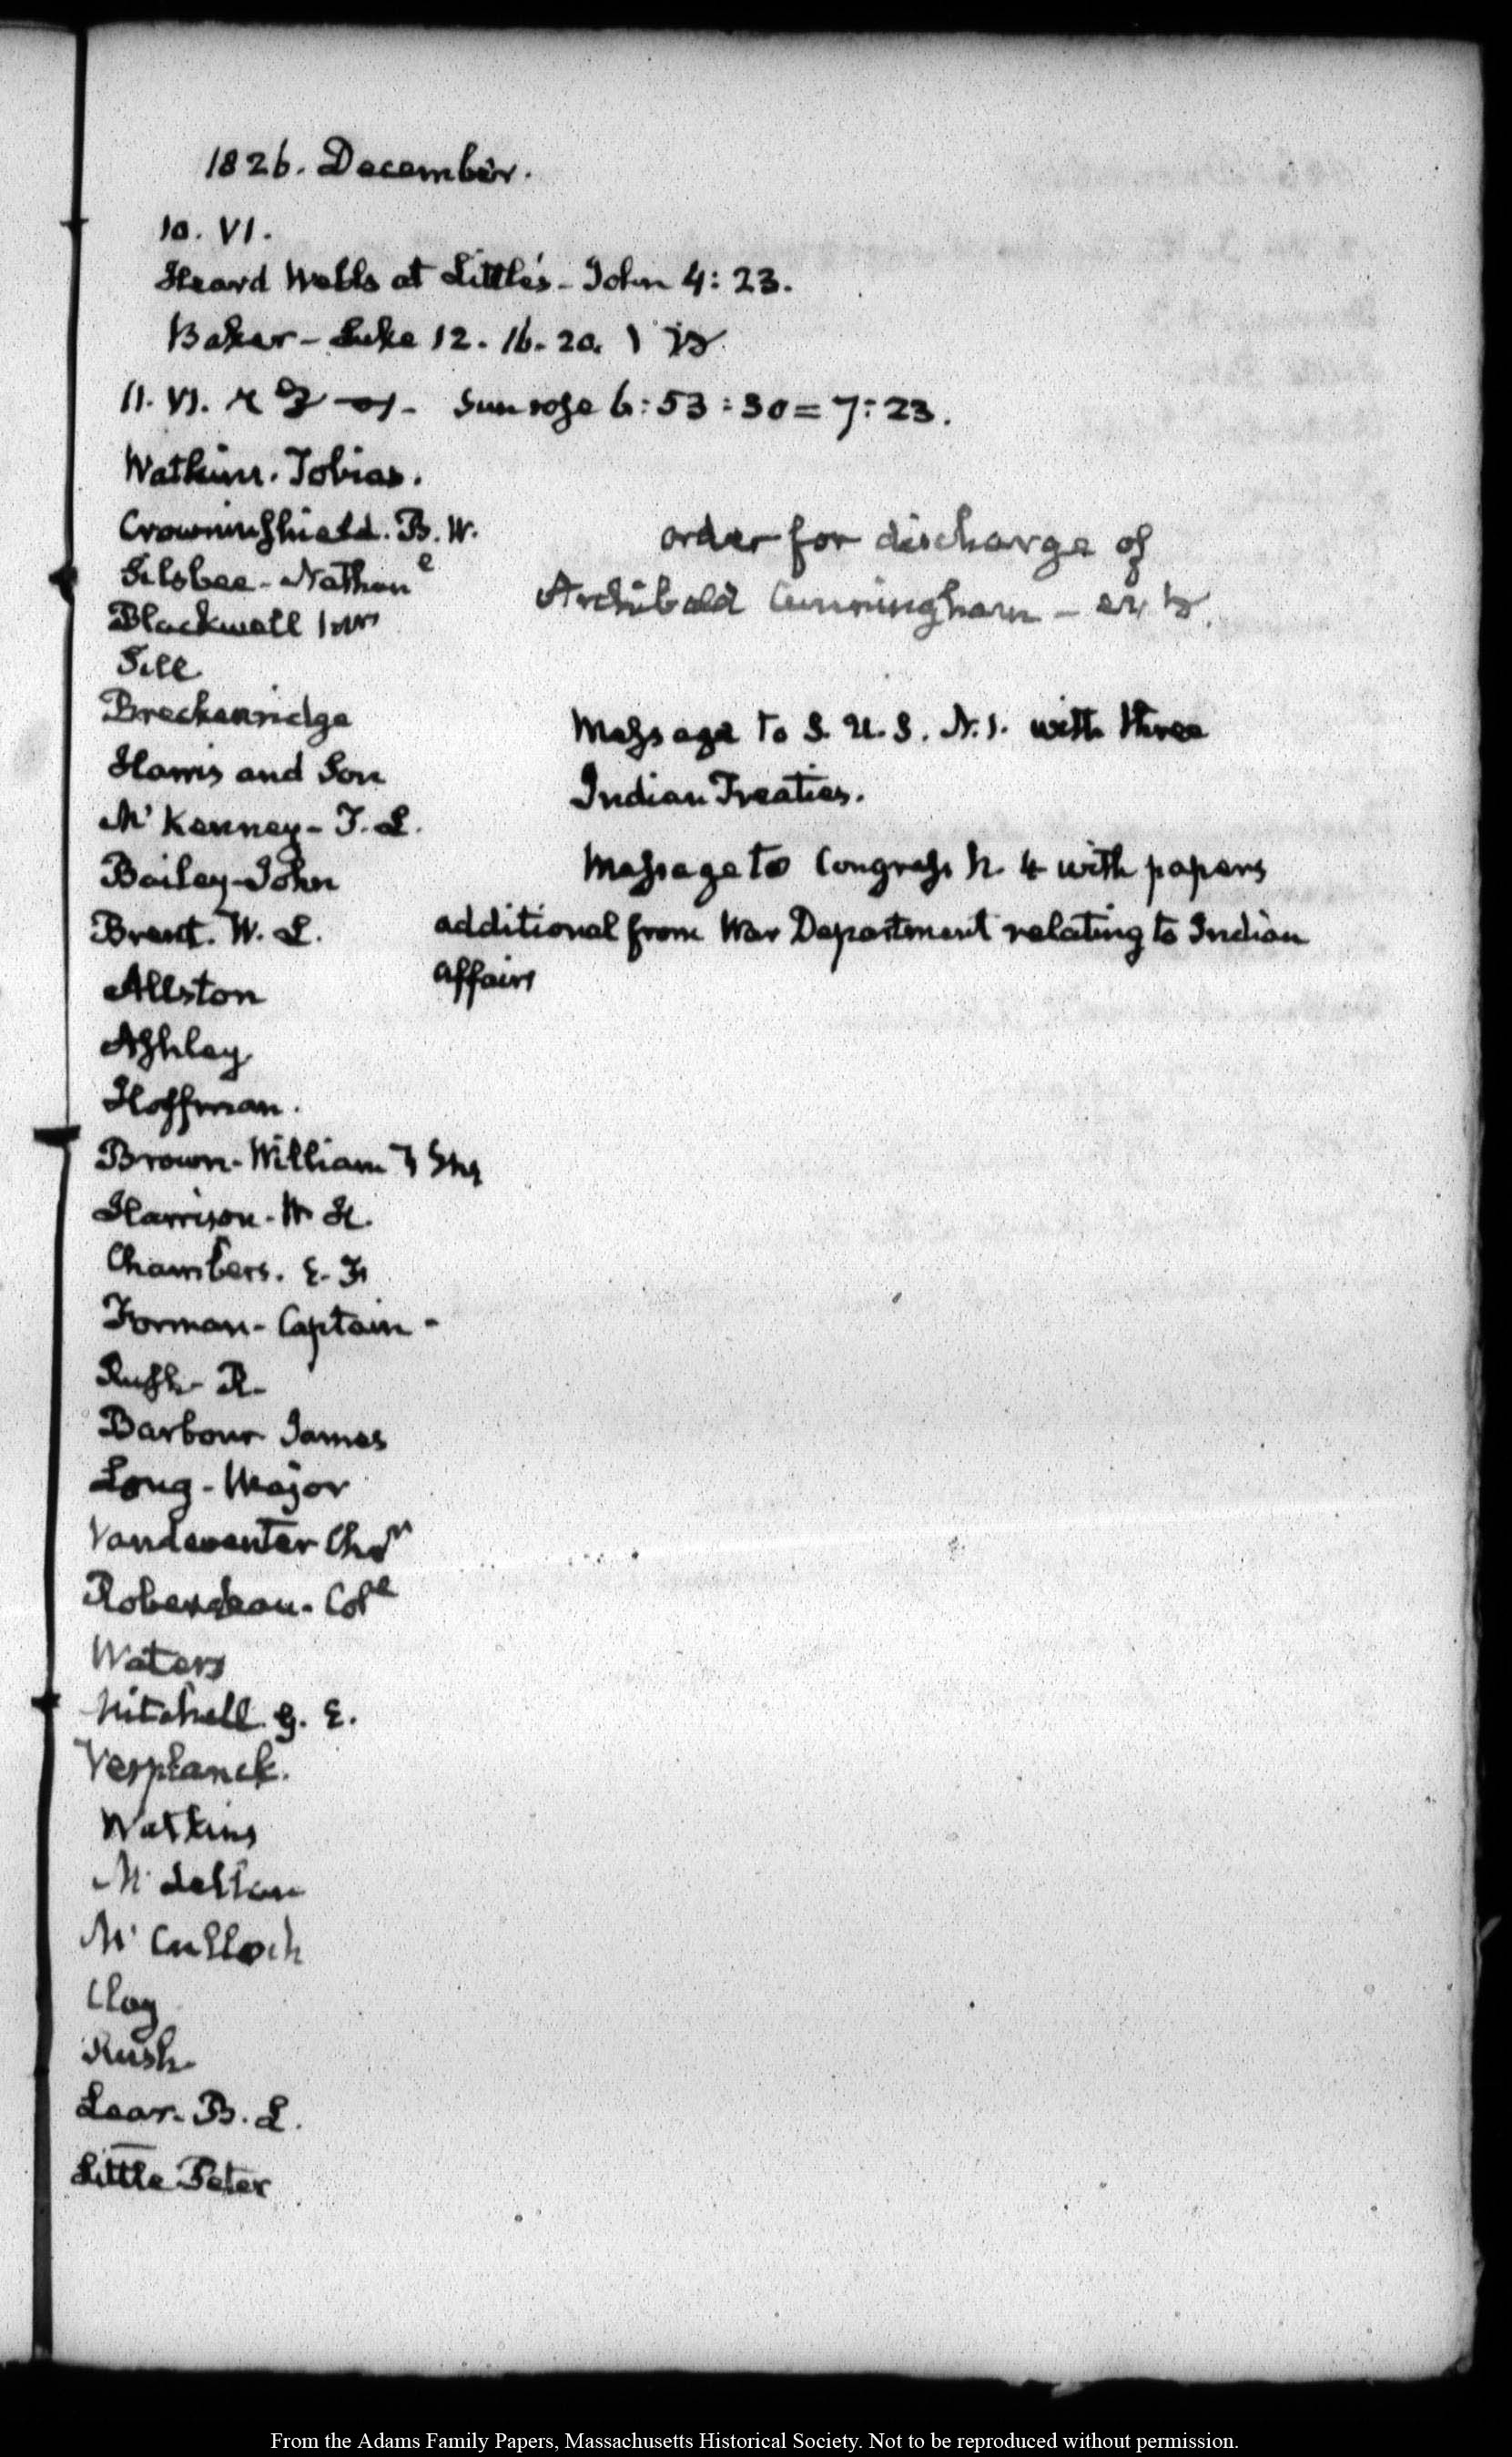 1826. December.
10. VI.
Heard Wells at Little's - John 4: 23.
Baker - Luke 12. 16-20.
11. VI. Sun rose 6: 53: 30 = 7: 23.
Watkins. Tobias.
Crowninshield. B. W.
Silsbee - Nathan^e
order for discharge of
Archibald Cunningham -
Blackwell
Sill
Breckenridge
Harris and Son
McKenney - T. L.
Bailey - John
Brent. W. L.
Allston
Ashley
Hoffman.
Message to S. U. S. N. 1. with three
Indian Treaties.
Message to Congress N. 4 with papers
additional from War Department relating to Indian
affairs
Brown - William
Harrison - W H.
Chambers. E. F.
Forman - Captain -
Rush - R.
Barbour James
Long - Major
Vandeventer Ch^r
Roberdeau - Col^l
Waters
Mitchell. G. E.
Verplanck.
Watkins
M'Culloch
Clay
Rush
Lear. B. L.
Little Peter
From the Adams Family Papers, Massachusetts Historical Society. Not to be reproduced without permission.